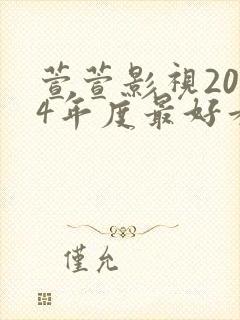 萱萱影視20
4年度最好看
僅允